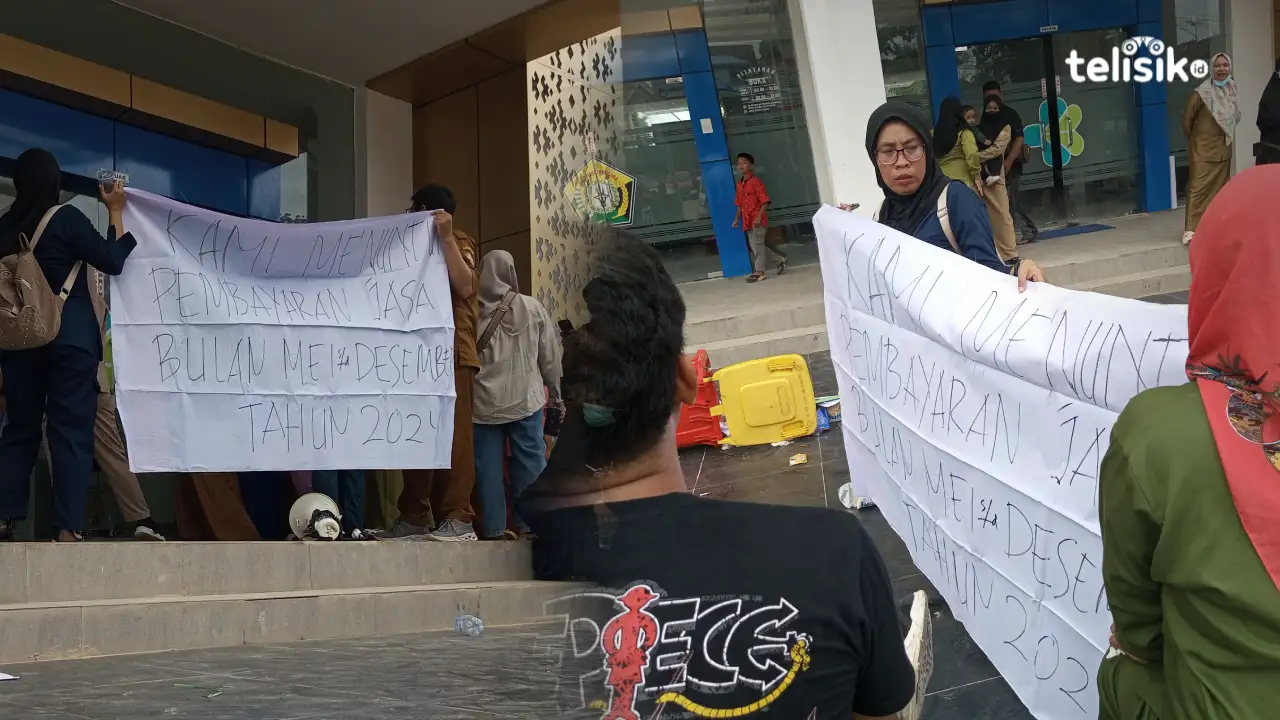 telisik.id
KAMI MENUNTU
PEMBAYARAN JASA
BULAN MEI s/d DESEMBER
TAHUN 2024
PELAYANAN
BUKA
KAMI MENUNT
PEMBAYARAN JASA
BULAN MEI s/d DESE
TAHUN 202